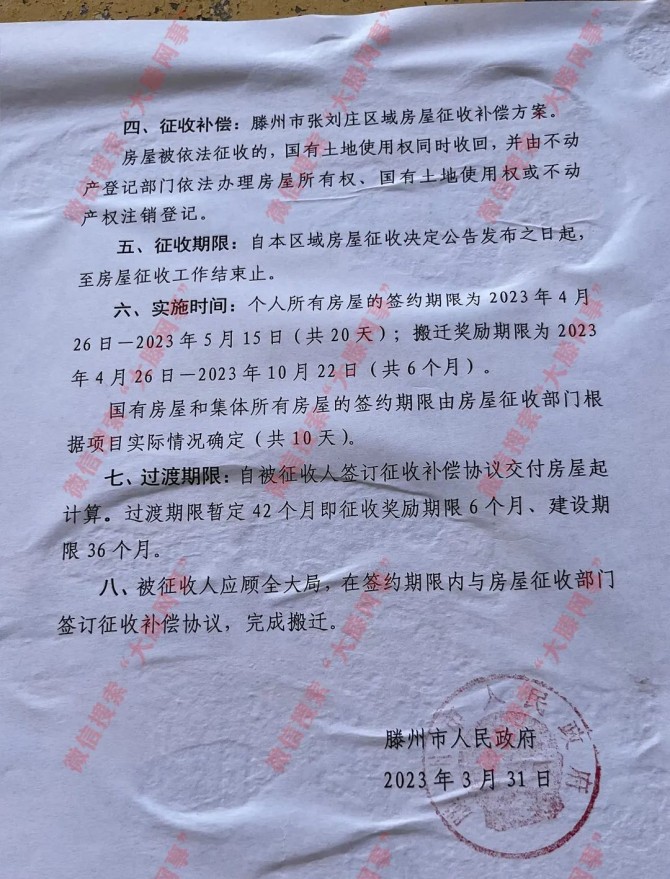 四、征收补偿：滕州市张刘庄区域房屋征收补偿方案。
房屋被依法征收的，国有土地使用权同时收回，并由不动
产登记部门依法办理房屋所有权、国有土地使用权或不动
产权注销登记。
五、征收期限：自本区域房屋征收决定公告发布之日起，
至房屋征收工作结束止。
六、实施时间：个人所有房屋的签约期限为 2023 年 4 月
26 日—2023 年 5 月 15 日（共 20 天）；搬迁奖励期限为 2023
年 4 月 26 日—2023 年 10 月 22 日（共 6 个月）。
国有房屋和集体所有房屋的签约期限由房屋征收部门根
据项目实际情况确定（共 10 天）。
七、过渡期限：自被征收人签订征收补偿协议交付房屋起
计算。过渡期限暂定 42 个月即征收奖励期限 6 个月、建设期
限 36 个月。
八、被征收人应顾全大局，在签约期限内与房屋征收部门
签订征收补偿协议，完成搬迁。
滕州市人民政府
2023 年 3 月 31 日
人民政府
微信搜索“大滕网事”
微信搜索“大滕网事”
微信搜索“大滕网事”
微信搜索“大滕网事”
微信搜索“大滕网事”
微信搜索“大滕网事”
微信搜索“大滕网事”
微信搜索“大滕网事”
微信搜索“大滕网事”